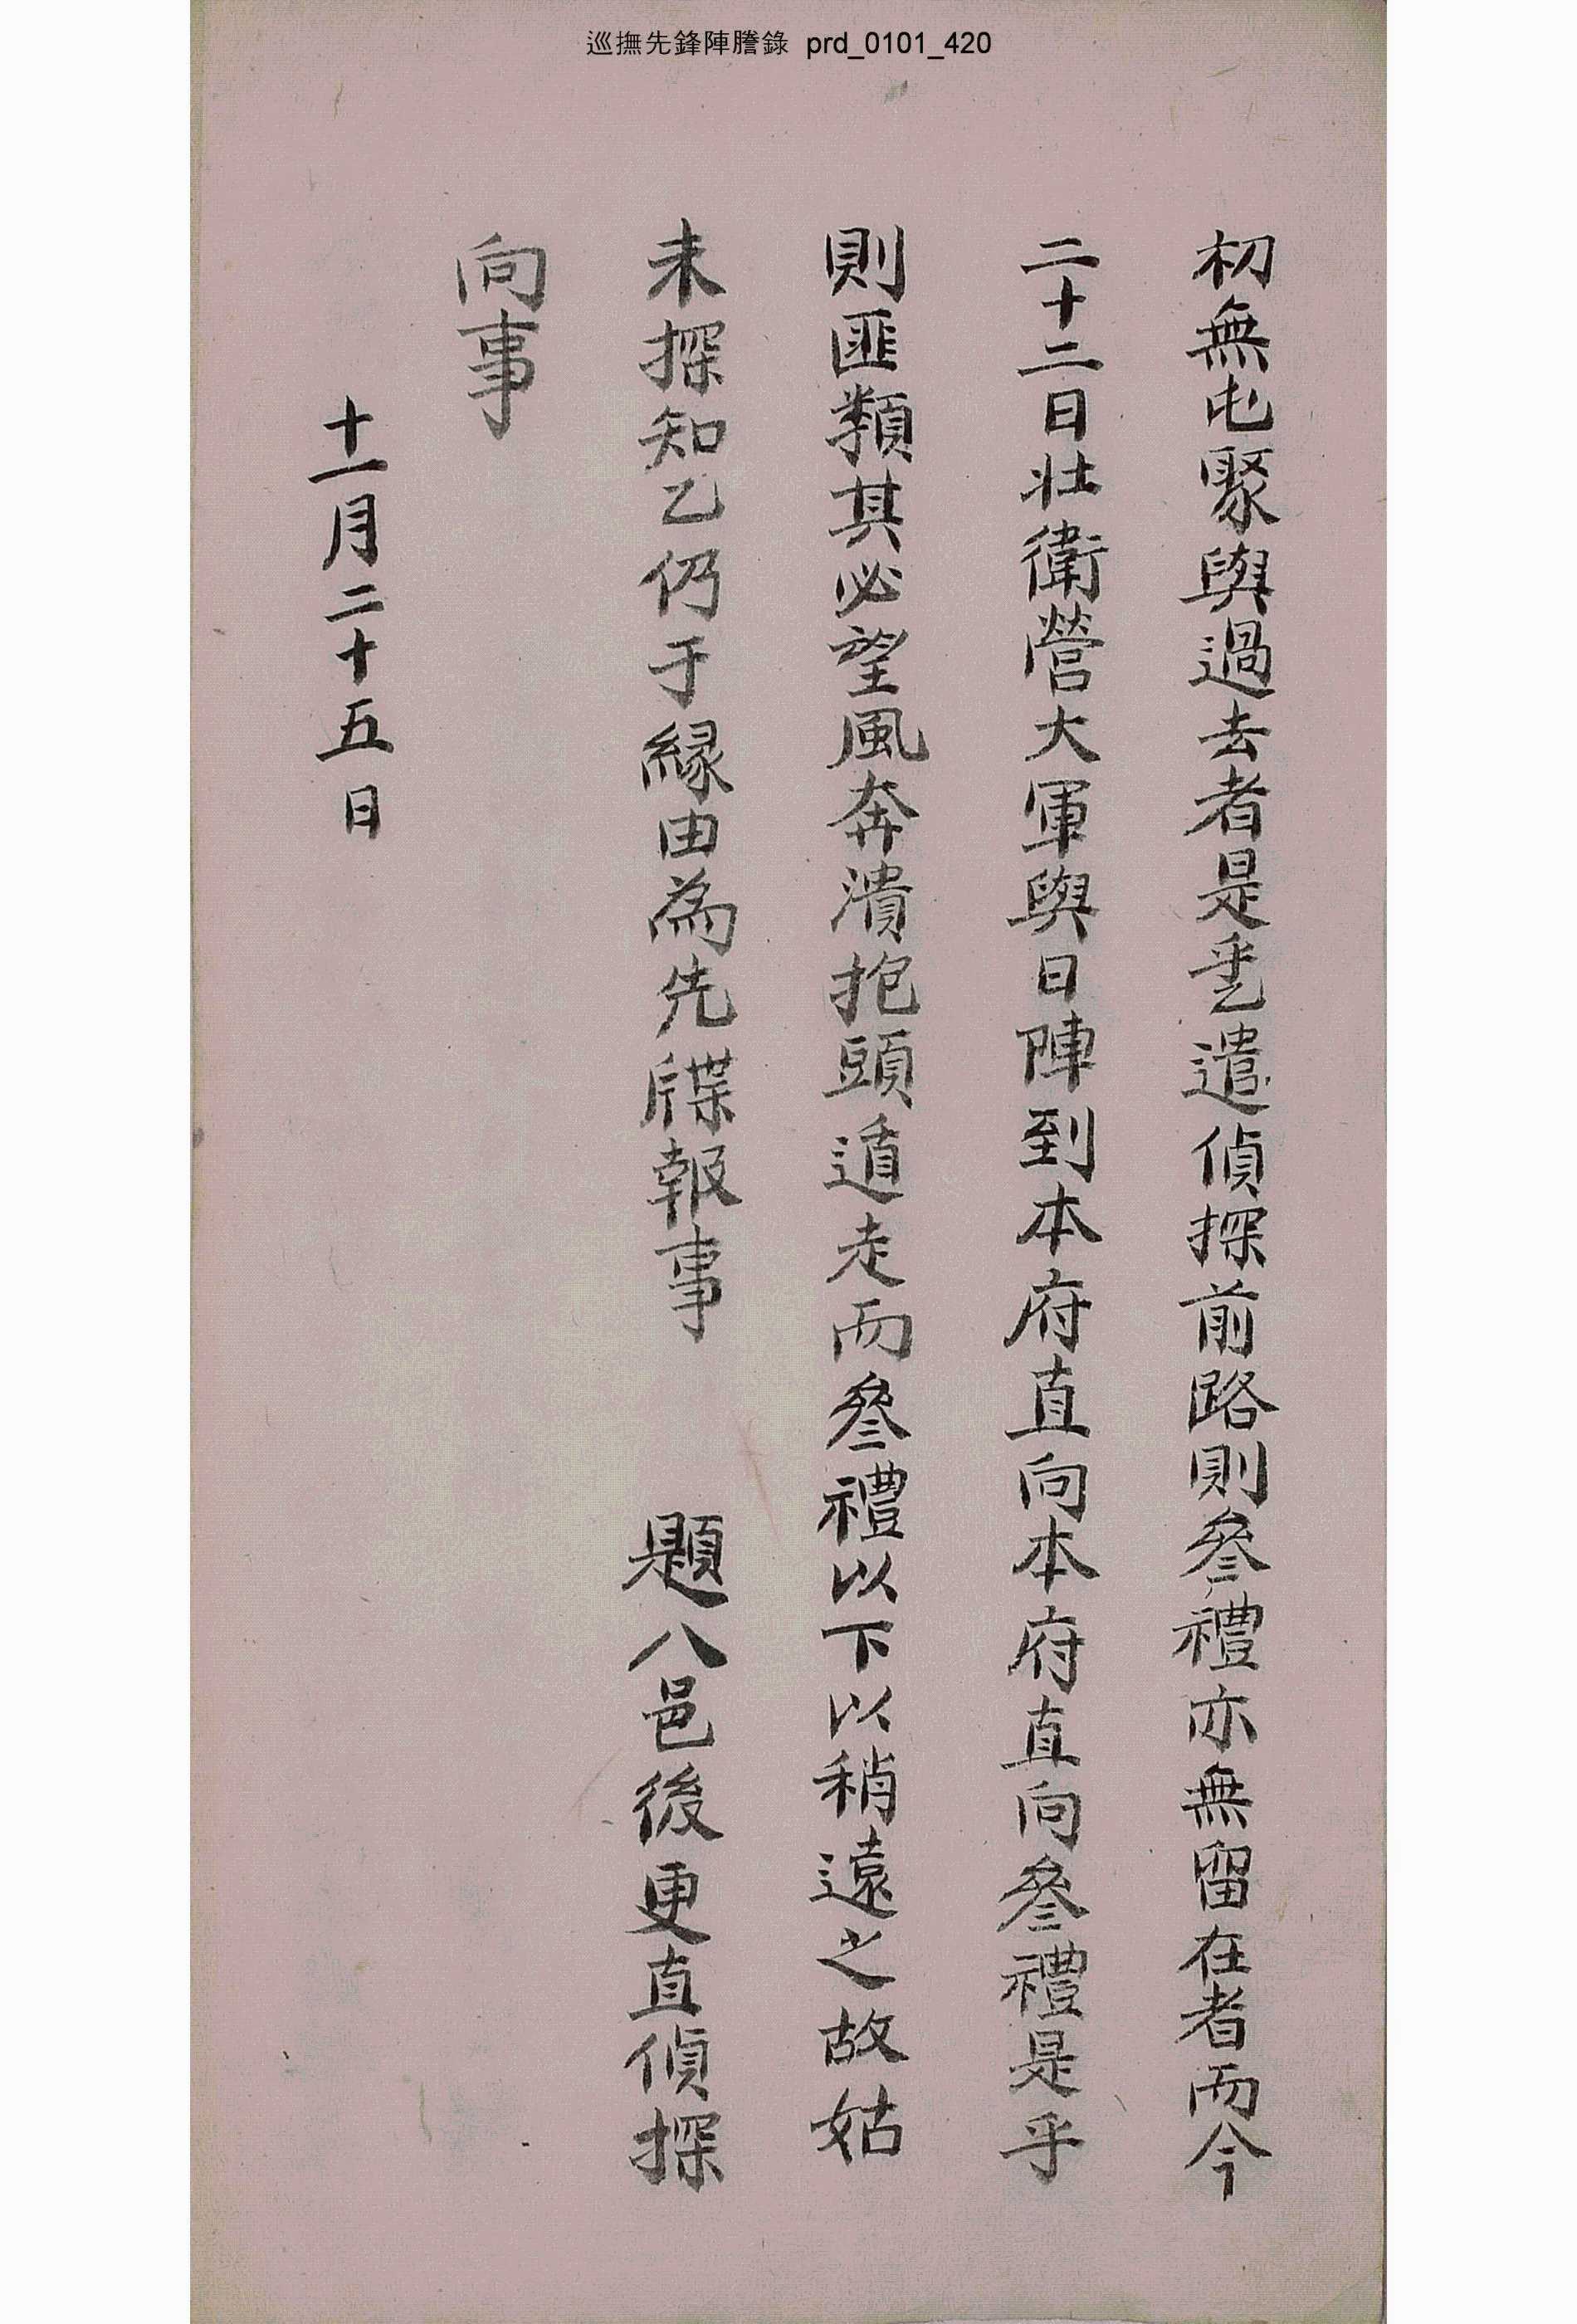 巡撫先鋒陣謄錄 prd_0101_420
初無屯聚與過去者是乎乙遣偵探前路則叄禮亦無留在者而今
二十二日壯衛營大軍與日陣到本府直向本府直向叄禮是乎
則匪類其必望風奔潰抱頭遁走而叄禮以下以稍遠之故姑
未探知乙仍于緣由為先牒報事 題八邑後更直偵探
向事
十一月二十五日